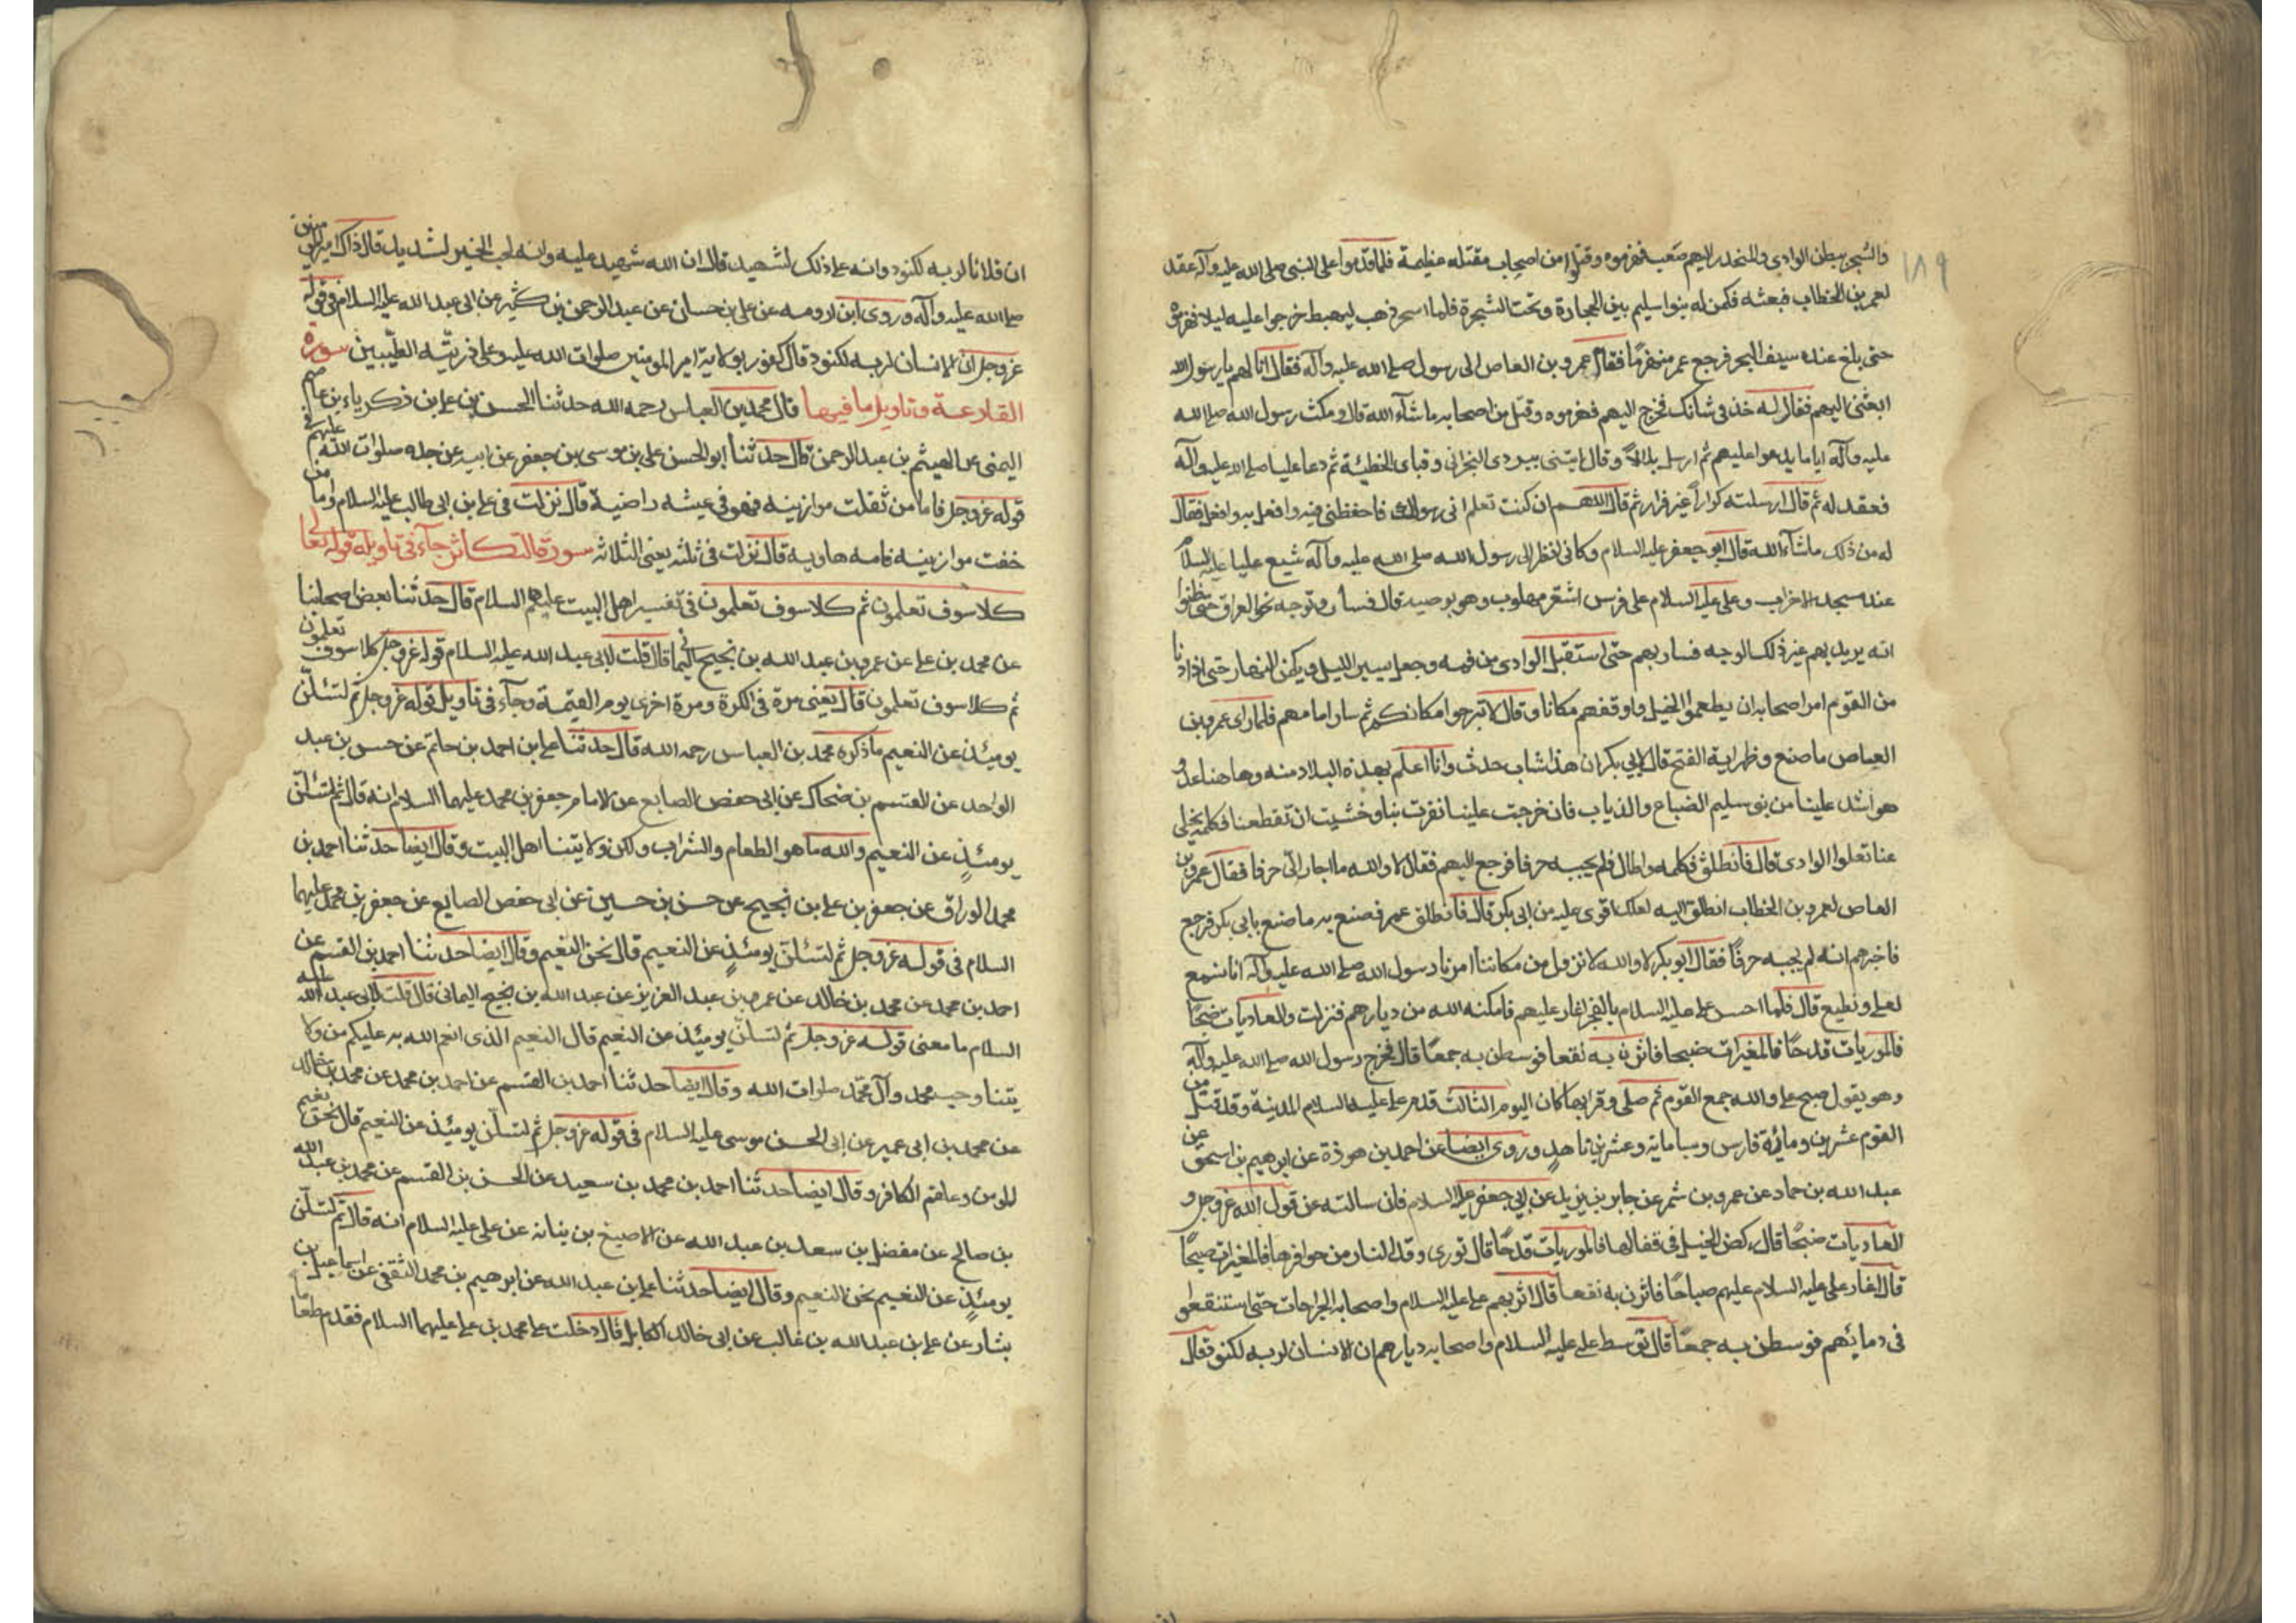 ١٨٩
والشجر ببطن الوادي والمنحدر اليهم صعب فهزموه وقتلوا من اصحاب مقتله عظيمة فلما قدموا على النبي صلى الله عليه وآله عقد
لعمر بن الخطاب فبعثه فكمن له بنوا سليم بين الحجارة وتحت الشجرة فلما ذهب ليهبط خرجوا عليه ليلا فهزموه
حتى بلغ عنده سيف البحر فرجع عمر منهزمًا فقام عمرو بن العاص الى رسول صلى الله عليه وآله فقال انا لهم يا رسول الله
ابعثني اليهم فقال له خذ في شانك فخرج اليهم فهزموه وقتل من اصحابه ما شآء الله قال ومكث رسول الله صلى الله
عليه وآله اياما يدعوا عليهم ثم ارسل بلالاً وقال ايتني ببردي النجراني وقباي الخطيئة ثم دعا عليا صلى الله عليه وآله
فعقد له ثم قال ارسلته كراراً غير فرار ثم قال اللهم ان كنت تعلم اني رسولك فاحفظني فيه وافعل به وافعل فقال
له من ذلك ماشآء الله قال ابو جعفر عليه السلام وكاني انظر الى رسول الله صلى الله عليه وآله شيع عليا عليه السلام
عند مسجد الاحزاب وعلي عليه السلام على فرس اشقر مهلوب وهو يوصيه قال فسار وتوجه نحو العراق حتى ظنوا
انه يريد بهم غير ذلك الوجه فسار بهم حتى استقبل الوادي من فمه وجعل يسير الليل ويكمن النهار حتى اذا دنا
من القوم امر اصحابه ان يطعموا الخيل واوقفهم مكانا وقال لا تبرحوا مكانكم ثم سار امامهم فلما راى عمرو بن
العاص ما صنع وظهر اية الفتح قال لابي بكر ان هذا شاب حدث وانا اعلم بهذه البلاد منه وهاهنا عدو
هو اشد علينا من بني سليم الضباع والذياب فان خرجت علينا نفرت بنا وخشيت ان تقطعنا فكلمه يخلي
عنا نعلوا الوادي قال فانطلق فكلمه واطال فلم يجبه حرفا فرجع اليهم فقال لا والله ما اجار الي حرفا فقال عمرو بن
العاص لعمر بن الخطاب انطلق اليه لعلك اقوى عليه من ابي بكر قال فانطلق عمر فصنع به ما صنع بابي بكر فرجع
فاخبرهم انه لم يجبه حرفًا فقال ابو بكر لا والله لا نزول من مكاننا امرنا رسول الله صلى الله عليه وآله ان نسمع
لعلي ونطيع قال فلما احس علي عليه السلام بالفجر اغار عليهم فامكنه الله من ديارهم فنزلت والعاديات ضبحًا
فالموريات قدحًا فالمغيرات ضبحا فاثرن به نقعا فوسطن به جمعًا قال فخرج رسول الله صلى الله عليه وآله
وهو يقول صبح علي والله جمع القوم ثم صلى وقرا بها كان اليوم الثالث قدم علي عليه السلام المدينة وقد قتل من
القوم عشرين ومائة فارس وسبا مائة وعشرين ناهدٍ وروى ايضا عن احمد بن هوذة عن ابرهيم بن اسحق عن
عبد الله بن حماد عن عمرو بن شمر عن جابر بن يزيد عن ابي جعفر عليه السلام فان سالته عن قول الله عز وجل و
العاديات ضبحًا قال ركض الخيل في قفالها فالموريات قدحًا قال توري وقد النار من حوافرها فالمغيرات صبحًا
قال اغار علي عليه السلام عليهم صباحًا فاثرن به نقعا قال اثر بهم علي عليه السلام واصحابه الجراحات حتى استنقعوا
في دمائهم فوسطن به جمعًا قال توسط علي عليه السلام واصحابه ديارهم ان الانسان لربه لكنود قال
ان فلانا لربه لكنود وانه على ذلك لشهيد قال ان الله شهيد عليه وانه لحب الخير لشديد قال ذاك امير المؤمنين
صلى الله عليه وآله وروى ابن اورمه عن علي بن حسان عن عبد الرحمن بن كثير عن ابي عبد الله عليه السلام في قوله
عز وجل ان الانسان لربه لكنود قال كفور بولاية امير المومنين صلوات الله عليه وعلى ذريته الطيبين سورة
القارعة وتاويل ما فيها قال محمد بن العباس رحمه الله حدثنا الحسن بن علي بن ذكرياء بن عاصم
اليمني عن الهيثم بن عبد الرحمن قال حدثنا ابو الحسن علي بن موسى بن جعفر عن ابيه عن جده صلوات الله عليهم في
قوله عز وجل فاما من ثقلت موازينه فهو في عيشه راضية قال نزلت في علي بن ابي طالب عليه السلام واما من
خفت موازينه فامه هاويه قال نزلت في ثلثه يعني الثلاثه سورة التكاثر جآء في تاويله قوله تعالى
كلا سوف تعلمون ثم كلا سوف تعلمون في تفسير اهل البيت عليهم السلام قال حدثنا بعض اصحابنا
عن محمد بن علي عن عمرو بن عبد الله بن نجيح اليماني قال قلت لابي عبد الله عليه السلام قوله عز وجل كلا سوف تعلمون
ثم كلا سوف تعلمون قال يعني مرة في الكرة ومرة اخرى يوم القيمة وجآء في تاويل قوله عز وجل ثم لتسئلن
يومئذ عن النعيم ما ذكره محمد بن العباس رحمه الله قال حدثنا علي بن احمد بن حاتم عن حسن بن عبد
الواحد عن القسم بن ضحاك عن ابي حفص الصايع عن الامام جعفر بن محمد عليهما السلام انه قال ثم لتسئلن
يومئذٍ عن النعيم والله ما هو الطعام والشراب ولكن ولايتنا اهل البيت وقال ايضا حدثنا احمد بن
محمد الوراق عن جعفر بن علي بن نجيح عن حسن بن حسين عن ابي حفص الصايع عن جعفر بن محمد عليهما
السلام في قوله عز وجل ثم لتسئلن يومئذٍ عن النعيم قال نحن النعيم وقال ايضا حدثنا احمد بن القسم عن
احمد بن محمد عن محمد بن خالد عن عمر بن عبد العزيز عن عبد الله بن نجيح اليماني قال قلت لابي عبد الله عليه
السلام ما معنى قوله عز وجل ثم لتسئلن يومئذ عن النعيم قال النعيم الذي انعم الله به عليكم من ولا
يتنا وحب محمد وآل محمد صلوات الله وقال ايضا حدثنا احمد بن القسم عن احمد بن محمد عن محمد بن خالد
عن محمد بن ابي عمير عن ابي الحسن موسى عليه السلام في قوله عز وجل ثم لتسئلن يومئذ عن النعيم قال نحن نعيم
المومن وعلقم الكافر وقال ايضا حدثنا احمد بن محمد بن سعيد عن الحسن بن القسم عن محمد بن عبد الله
بن صالح عن مفضل بن سعد بن عبد الله عن الاصبغ بن بنانه عن علي عليه السلام انه قال ثم لتسئلن
يومئذٍ عن النعيم نحن النعيم وقال ايضا حدثنا علي بن عبد الله عن ابرهيم بن محمد الثقفي عن اسماعيل بن
بشار عن علي بن عبد الله بن غالب عن ابي خالد الكابلي قال دخلت على محمد بن علي عليهما السلام فقدم طعاما